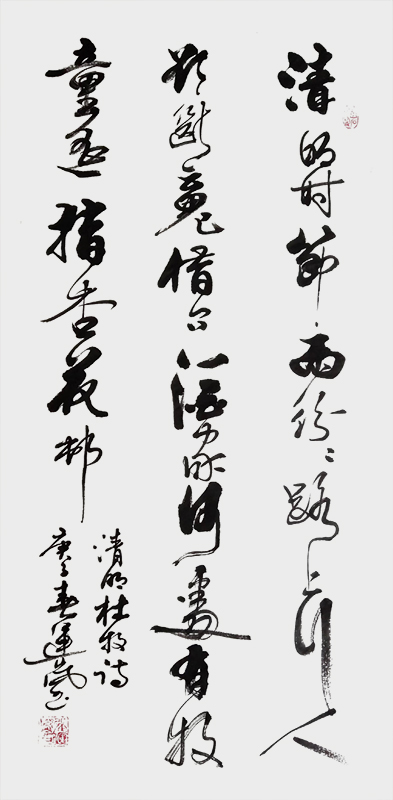 清明时節雨紛紛路上行人
欲斷魂借问酒家何處有牧
童遥指杏花邨
清明杜牧诗
庚子春運